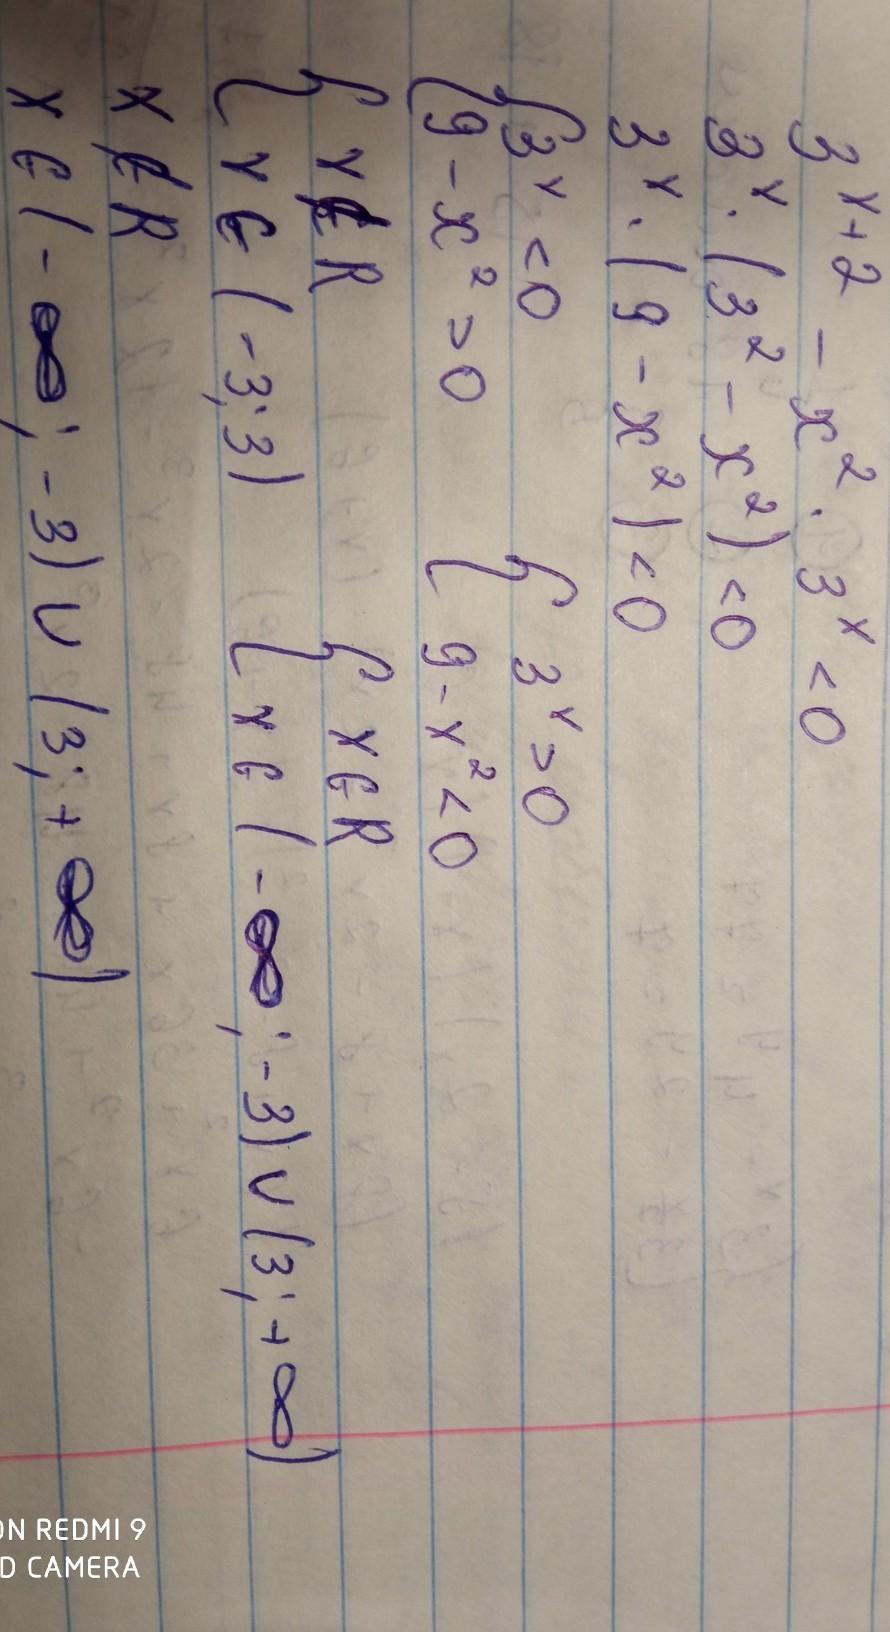 3^(x+2) - x² · 3^x < 0
3^x · (3² - x²) < 0
3^x · (9 - x²) < 0
{ 3^x < 0 { 3^x > 0
{ 9 - x² > 0 { 9 - x² < 0
{ x ∉ R { x ∈ R
{ x ∈ (-3; 3) { x ∈ (-∞; -3) ∪ (3; +∞)
x ∉ R
x ∈ (-∞; -3) ∪ (3; +∞)
ON REDMI 9
D CAMERA